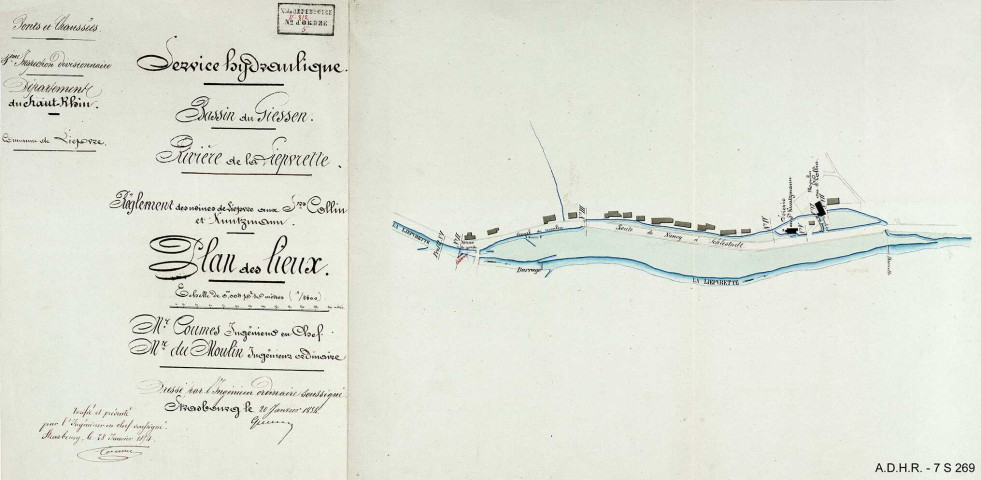 Ponts et Chaussées.
Inspection divisionnaire
Département
du Haut-Rhin.
Commune de Liepvre.
N° d'ORDRE
5
Service hydraulique.
Bassin du Giessen.
Rivière de la Liepvrette.
Règlement des usines de Liepvre aux Srs Collin
et Kuntzmann.
Plan des lieux.
Mr Coumes Ingénieur en Chef.
Mr du Moulin Ingénieur ordinaire
Dressé par l'Ingénieur ordinaire soussigné
Strasbourg le 20 Janvier
Vérifié et présenté
par l'Ingénieur en chef soussigné
Strasbourg, le 23 Janvier
Coumes
LA LIEPVRETTE
Canal du moulin
Route de Nancy à Schlestadt
Barrage
LA LIEPVRETTE
Scierie
Kuntzmann
Moulin
Collin
A.D.H.R. - 7 S 269